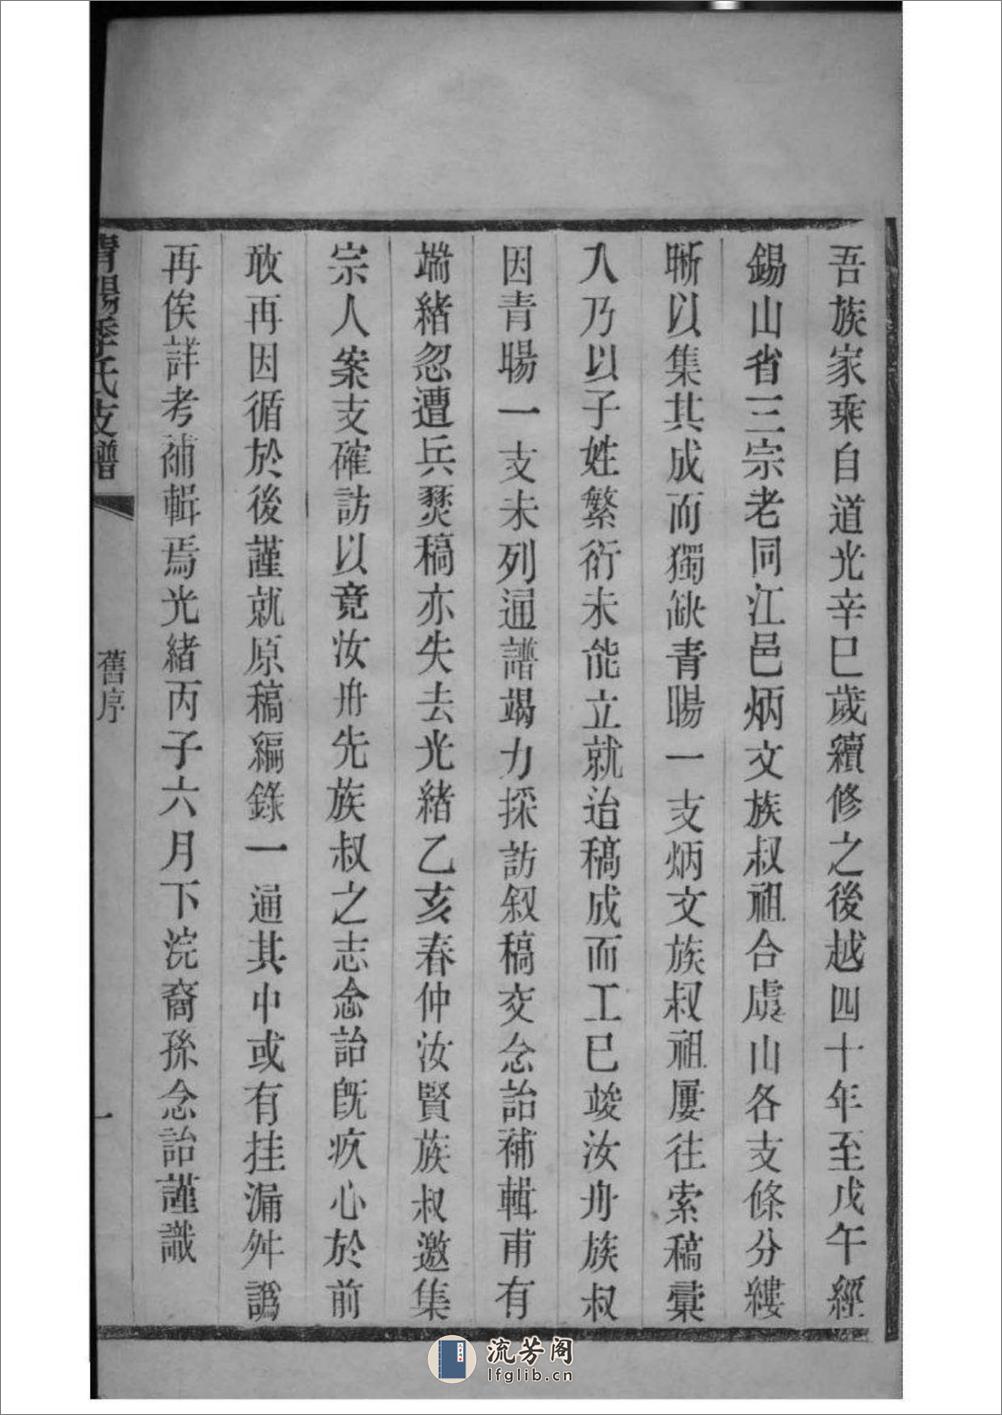 吾族家乘自道光辛巳歲續修之後越四十年至戊午經
錫山省三宗老同江邑炳文族叔祖合虞山各支條分縷
晰以集其成而獨缺青暘一支炳文族叔祖屢往索稿彙
入乃以子姓繁衍未能立就治稿成而工已竣汝舟族叔
因青暘一支未列通譜竭力採訪叙稿交念詒補輯甫有
端緒忽遭兵燹稿亦失去光緒乙亥春仲汝賢族叔邀集
宗人案支確訪以竟汝舟先族叔之志念詒旣疚心於前
敢再因循於後謹就原稿編錄一通其中或有挂漏舛譌
再俟詳考補輯焉光緒丙子六月下浣裔孫念詒謹識
青暘季氏支譜
舊序
一
流芳阁
lfglib.cn